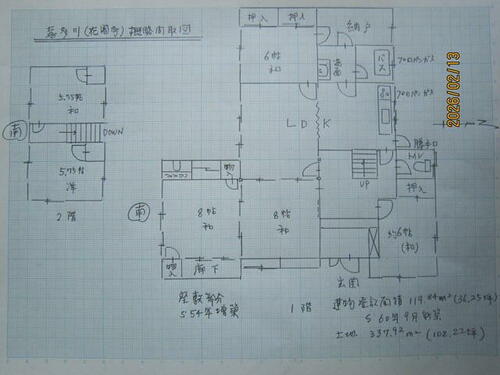 概略間取図
押入
押入
納戸
6帖
和
洗面
バス
プロパンガス
プロパンガス
2026/02/13
5.75帖
和
南
DOWN
5.75帖
洋
2階
LDK
勝手口
UP
押入
物入
南
8帖
和
8帖
和
6帖
(和)
物入
廊下
玄関
座敷部分
S54年増築
1階
建物登記面積 119.84m² (36.25坪)
S60年9月新築
土地 337.92m² (102.22坪)